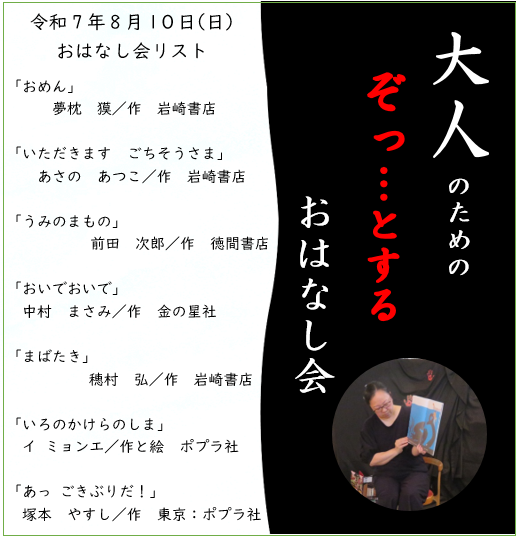 令和７年８月１０日(日)
おはなし会リスト
「おめん」
夢枕　獏／作　岩崎書店
「いただきます　ごちそうさま」
あさの　あつこ／作　岩崎書店
「うみのまもの」
前田　次郎／作　徳間書店
「おいでおいで」
中村　まさみ／作　金の星社
「まばたき」
穂村　弘／作　岩崎書店
「いろのかけらのしま」
イ ミョンエ／作と絵　ポプラ社
「あっ ごきぶりだ！」
塚本　やすし／作　東京：ポプラ社
大人のための
ぞっ…とする
おはなし会